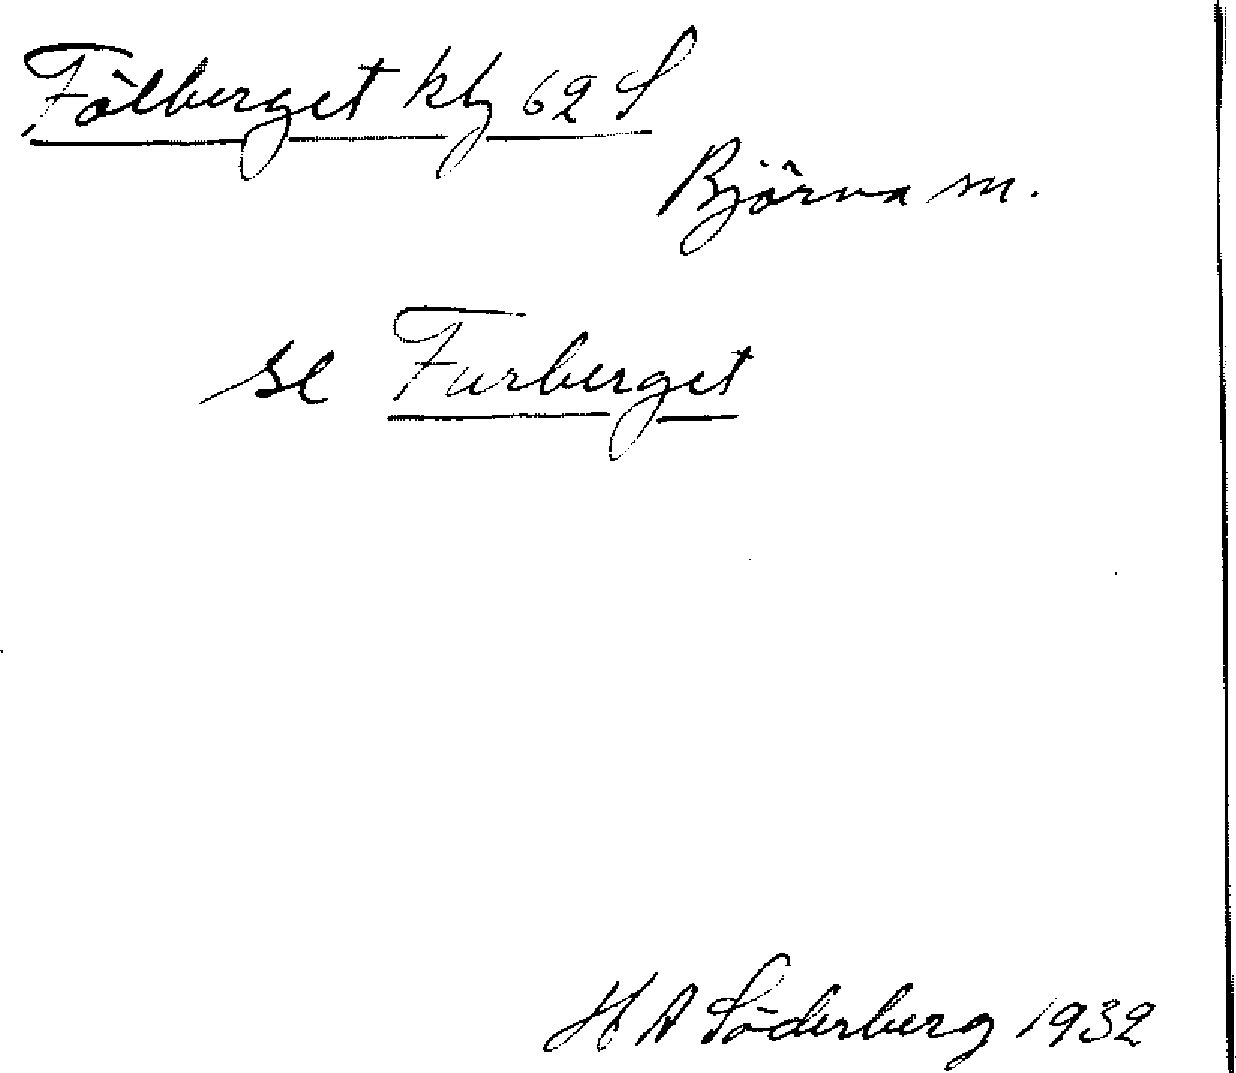 Fölberget kbg 62 S
Björna sn.
se Furberget
H A Söderberg 1932